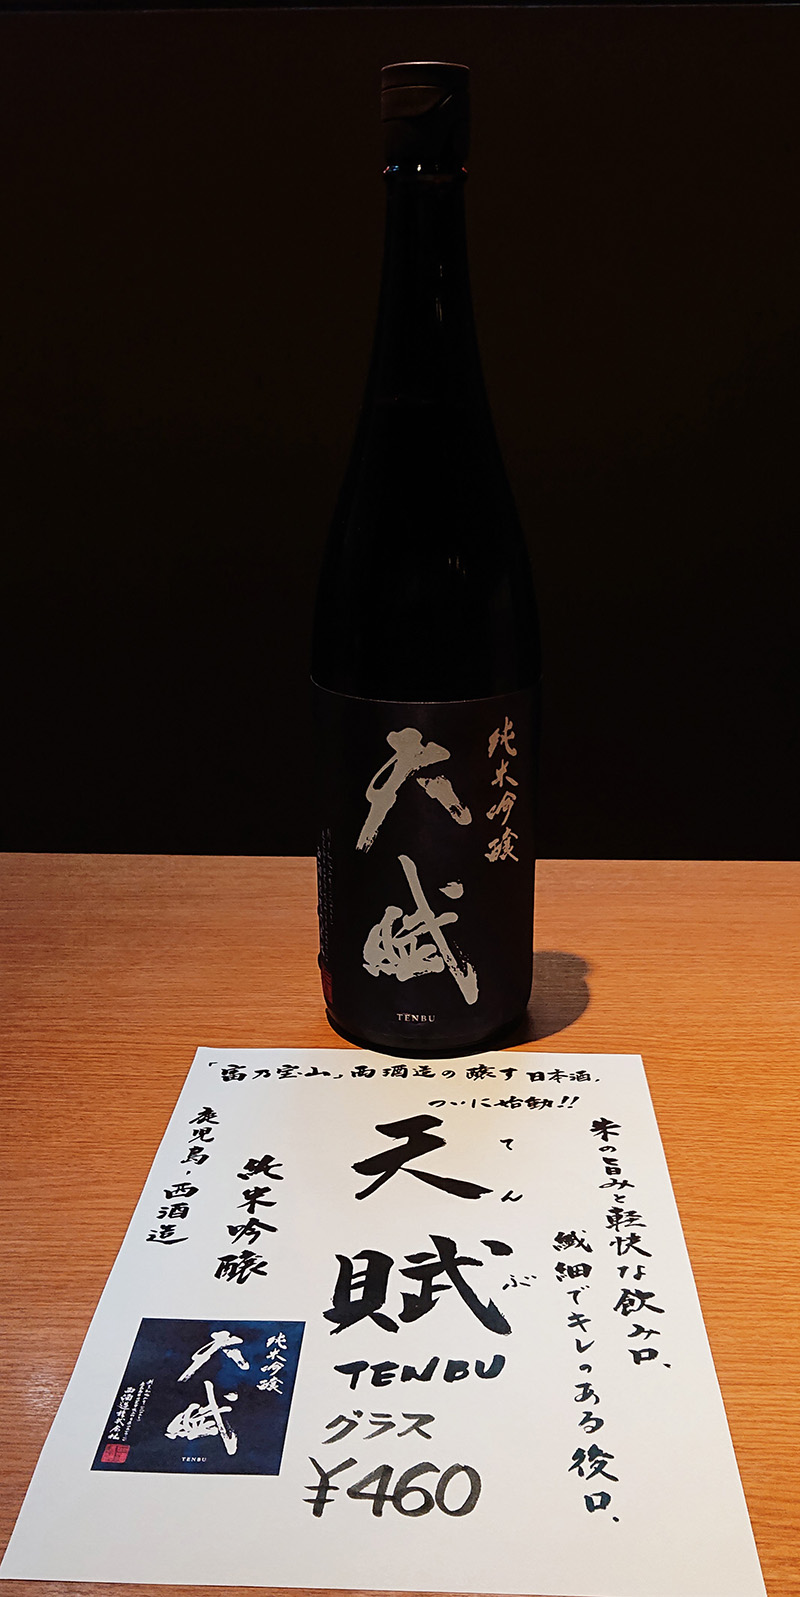 純米吟醸
天賦
TENBU
「富乃宝山」西酒造の醸す日本酒、
ついに始動!!
米の旨みと軽快な飲み口、
繊細でキレのある後口、
天賦
てんぶ
TENBU
グラス
¥460
純米吟醸
鹿児島・西酒造
純米吟醸
天賦
TENBU
西酒造株式会社